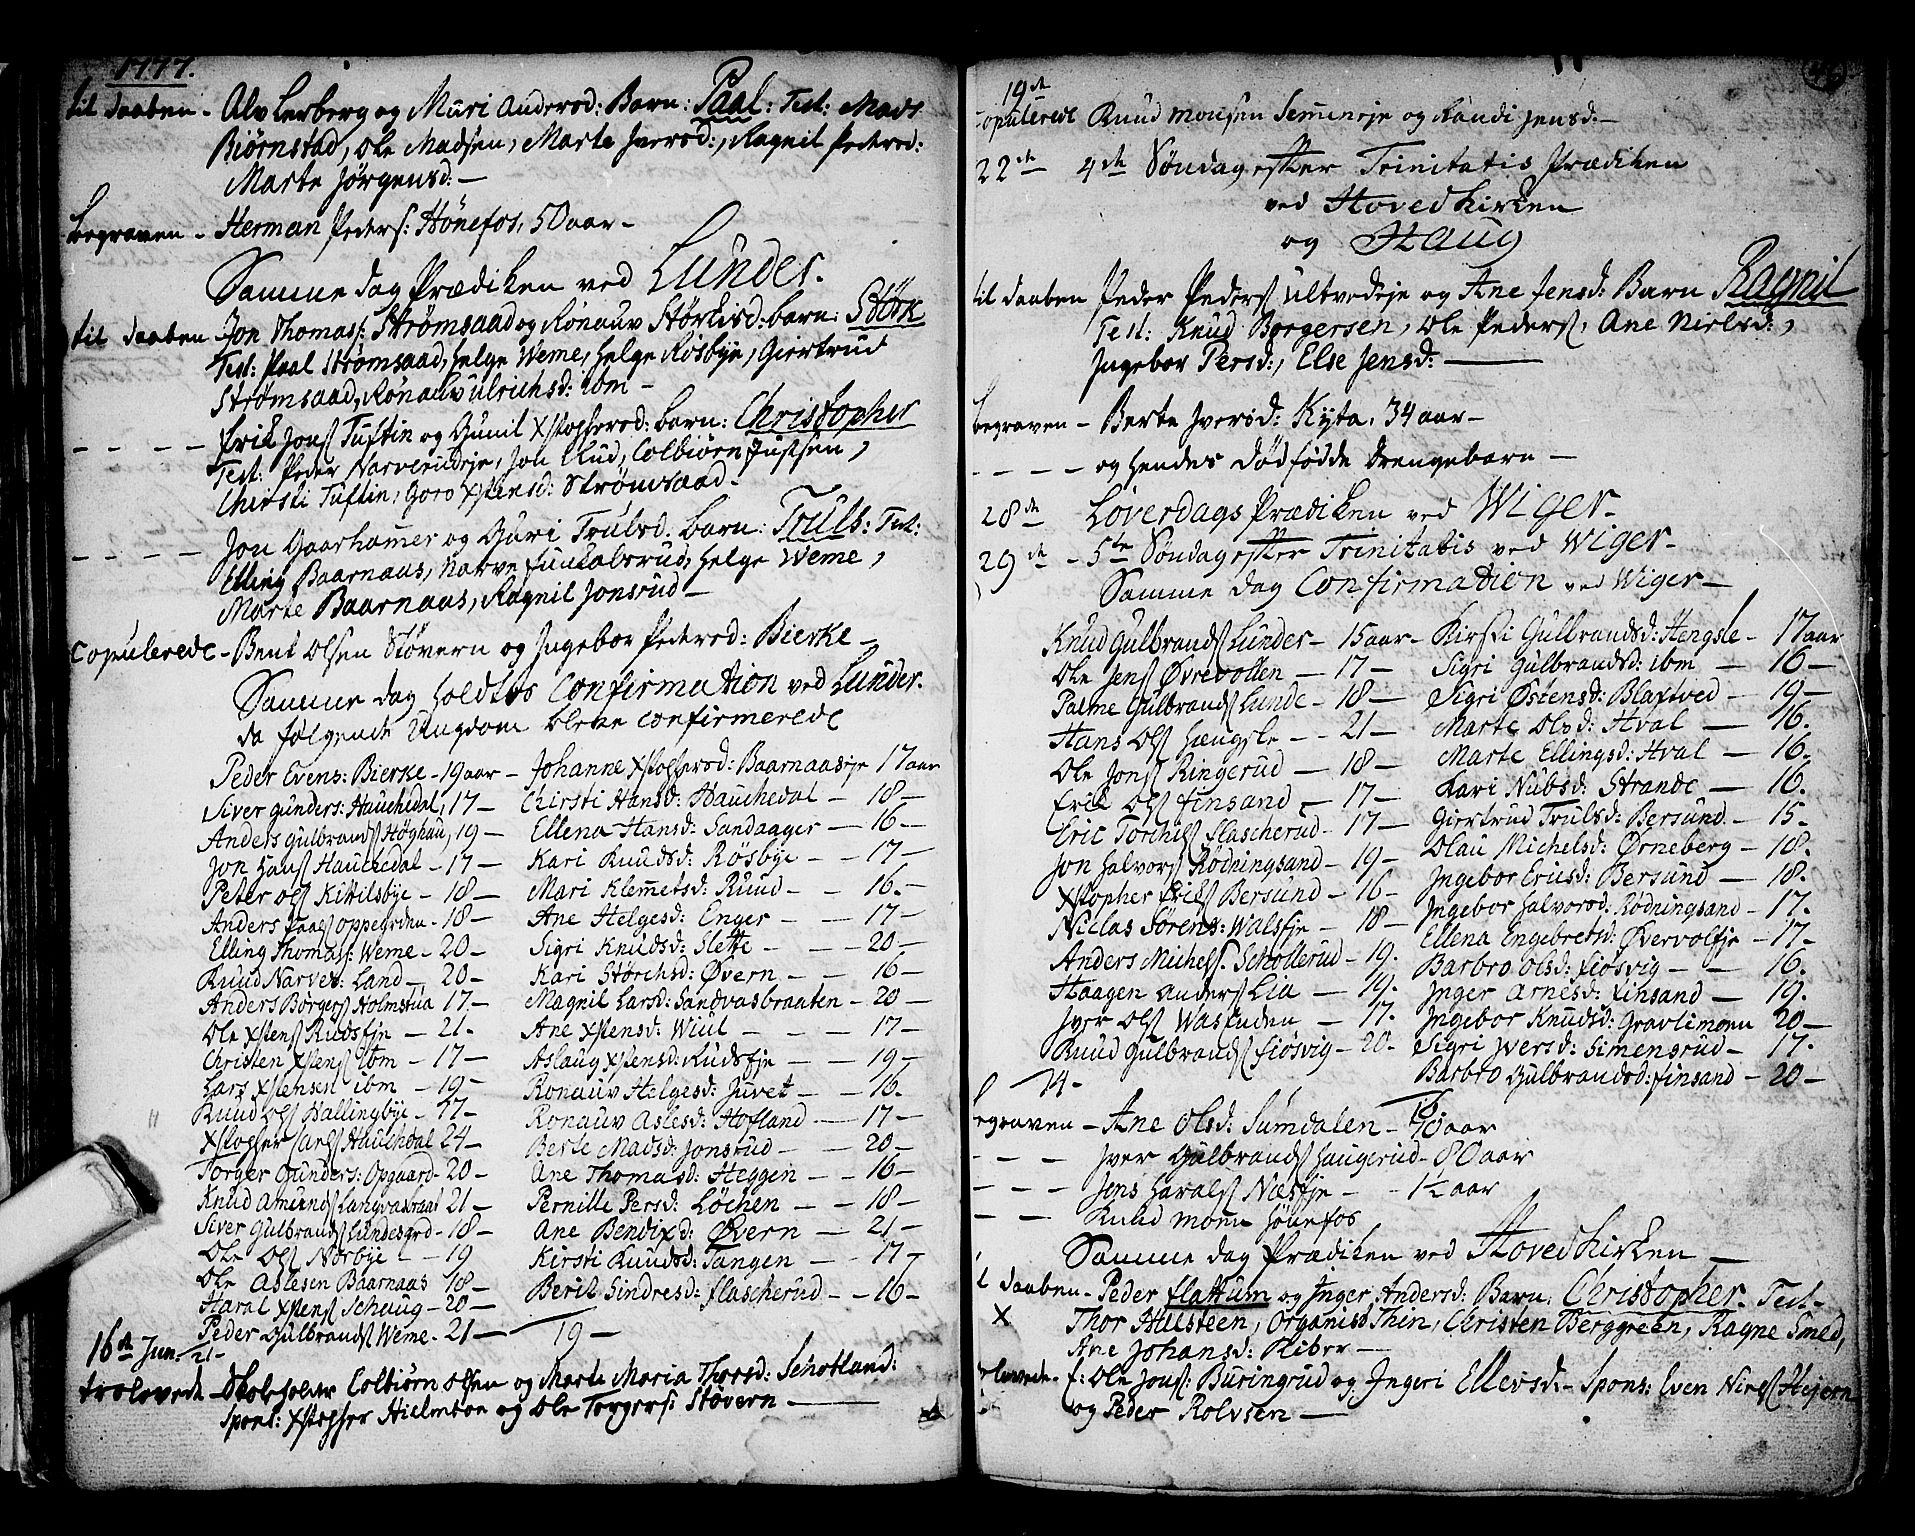 1777.
til daaben - Alv Lerberg og Mari Andersd: Barn: Paal: Test: Mads
Biørnstad, Ole Madsen, Marte Jversd:, Ragnil Pedersd:
Marte Jørgensd: —
begraven - Herman Peders: Hönefos, 50 aar -
Samme dag Prædiken ved Lunder.
til daaben - Jon Thomass: Strømsaad og Rönauv Störkisd: barn: Störk
Test: Paal Strømsaad, Helge Weme, Helge Rösbye, Giertrud
Strømsaad, Rönauv Ulrichsd: ibm -
- - - - Erik Jons Tuftin og Gunil Xstophersd: barn: Christopher
Test: Peder Narverudeje, Jon Rud, Colbiørn Justsen,
Chirsti Tuftin, Goro Xstensd: Strömsaad -
- - - - Jon Gaarhamer og Guri Trulsd. barn: Truls: Test:
Elling Baarnaas, Narve Juulabsrud, Helge Weme,
Marte Baarnaas, Ragnil Jonsrud —
Copulerede - Bent Olsen Støvern og Jngebor Pedersd: Bierke -
Samme dag holdtes Confirmation ved Lunder.
da følgende Ungdom bleve confirmerede
Peder Evens: Bierke - 19 aar - Johanne Xstophersd: Baarnaaseje 17 aar
Siver Gunders: Hauchedal, 17 — Chirsti Hansd: Hauchedal - 18 -
Anders Gulbrands Høghau, 19 — Ellena Hansd: Sandaager — 16 -
Jon Hans Hauchedal - 17 — Kari Knudsd: Rösbye - - 17 -
Peter Ols Kittilsbye - 18 — Mari Klemetsd: Ruud - - 16. -
Anders Paals Oppegrden - 18 — Ane Helgesd: Enger - - 17 -
Elling Thomass: Weme - 20 — Sigri Knudsd: Slette - - 20 -
Knud Narves: Land - 20 - Kari Störchsd: Øvern - - 16 -
Anders Börgers Holmstua 17. - Magnil Larsd: Sandvasbraaten - 20 -
Ole Xstens Rudseje - 21. Ane Xstensd: Wiul - - 17 -
Christen Xstens ibm - 17 — Aslaug Xstensd: Rudseje - - 19 -
Lars Xstensen ibm - 19 - Ronauv Helgesd: Juvet - - 16.
Knud Ols Hallingbye - 17 - Ronauv Aslesd: Hofland - 17 -
Xstopher Carls Hauchdal 24 — Berte Madsd: Jonsrud - 20 -
Torger Gunders: Opgaard - 20 - Ane Thomasd: Heggen - 16 -
Knud Amunds Langvasraat 21 - Pernille Persd: Löchen - - 18 -
Siver Gulbrands Lundesgrd - 18 - Ane Bendixd: Øvern - 21 -
Ole Ols Norbye - - 19 Kirsti Knudsd: Tangen - 17 -
Ole Aslesen Baarnaas 18 - Berit Sindresd: Flascherud - - 16 -
Haral Xstens Schaug - 20 -
Peder Gulbrands Weme - 21 — 19 -
16de Jun: 21 -
trolovede - Skoleholder Colbiørn Olsen og Marte Maria Thorsd: Schotland:
Spons: Xstopher Hielmton og Ole Torgers: Støvern -
19de
Copulerede Knud Monsen Semmeneje og Randi Jensd: -
22de 4de Søndag efter Trinitatis Prædiken
ved Hovedkirken
og Haug
til daaben Peder Peders Ultvedeje og Ane Jensd: Barn Ragnil
Test: Knud Borgersen, Ole Peders, Ane Nielsd:,
Jngebor Persd:, Else Jensd: -
begraven - Berte Jversd: Kyta, 34 aar -
- - - - og hendes dödfödde drengebarn -
28de Løverdags Prædiken ved Wiger -
29de - 5te Søndag efter Trinitatis ved Wiger -
Samme dag Confirmation ved Wiger -
Knud Gulbrands Lunder - 15 aar - Kirsti Gulbrandsd: Hengsle - 17 aar
Ole Jens Øvrevollen - 17 - Sigri Gulbrandsd: ibm - 16 -
Palme Gulbrands Lunde - 18 - Sigri Østensd: Blaxtved - 19 -
Hans Ols Hængsle - - 21 - Marte Olsd: Hval - 16.
Ole Jons Ringerud - 18 - Marte Ellingsd: Hval - 16.
Erik Ols Finsand - 17 - Kari Nubsd: Strande - 16.
Eric Torchils Flascherud - 17 - Giertrud Trulsd: Bersund - 15.
Jon Halvors Rödningsand - 19 - Olau Michelsd: Örneberg - 18.
Xstopher Eriks Bersund - 16 - Jngebor Ericsd: Bersund - 18.
Niclas Sörens: Walseje - 18 Jngebor Halvorsd: Rödningsand - 17.
Anders Michels. Schollerud - 19. Ellena Engebretsd: Øvervolleje - 17 -
Haagen Anders Lia - 19. Barbro Olsd: Fiøsvig - - 16.
Jver Ols Wasenden - 17. Jnger Arnesd: Finsand - 19.
Knud Gulbrands Fiösvig - 20 - Jngebor Knudsd: Gravlimoen 20 -
14 - Sigri Jversd: Simensrud - 17.
Barbro Gulbrandsd: Finsand - 20 -
16.
begraven - Ane Olsd: Sumdalen - 70 aar
- - - Jver Gulbrands Haugerud - 80 aar
- - - Jens Harals Næseje - - 1½ aar
- - - Knud Moen Hönefos
Samme dag Prædiken ved Hovedkirken -
til daaben - Peder Flattum og Jnger Andersd: Barn: Christopher. Test -
X Thor Hulsteen, Organist Thin, Christen Berggreen, Ragne Smed,
Ane Johansd: Riber -
trolovede - f: Ole Jons: Buringrud og Jngeri Ellevsd: - Spons: Even Niels Hejern
og Peder Rolvsen -